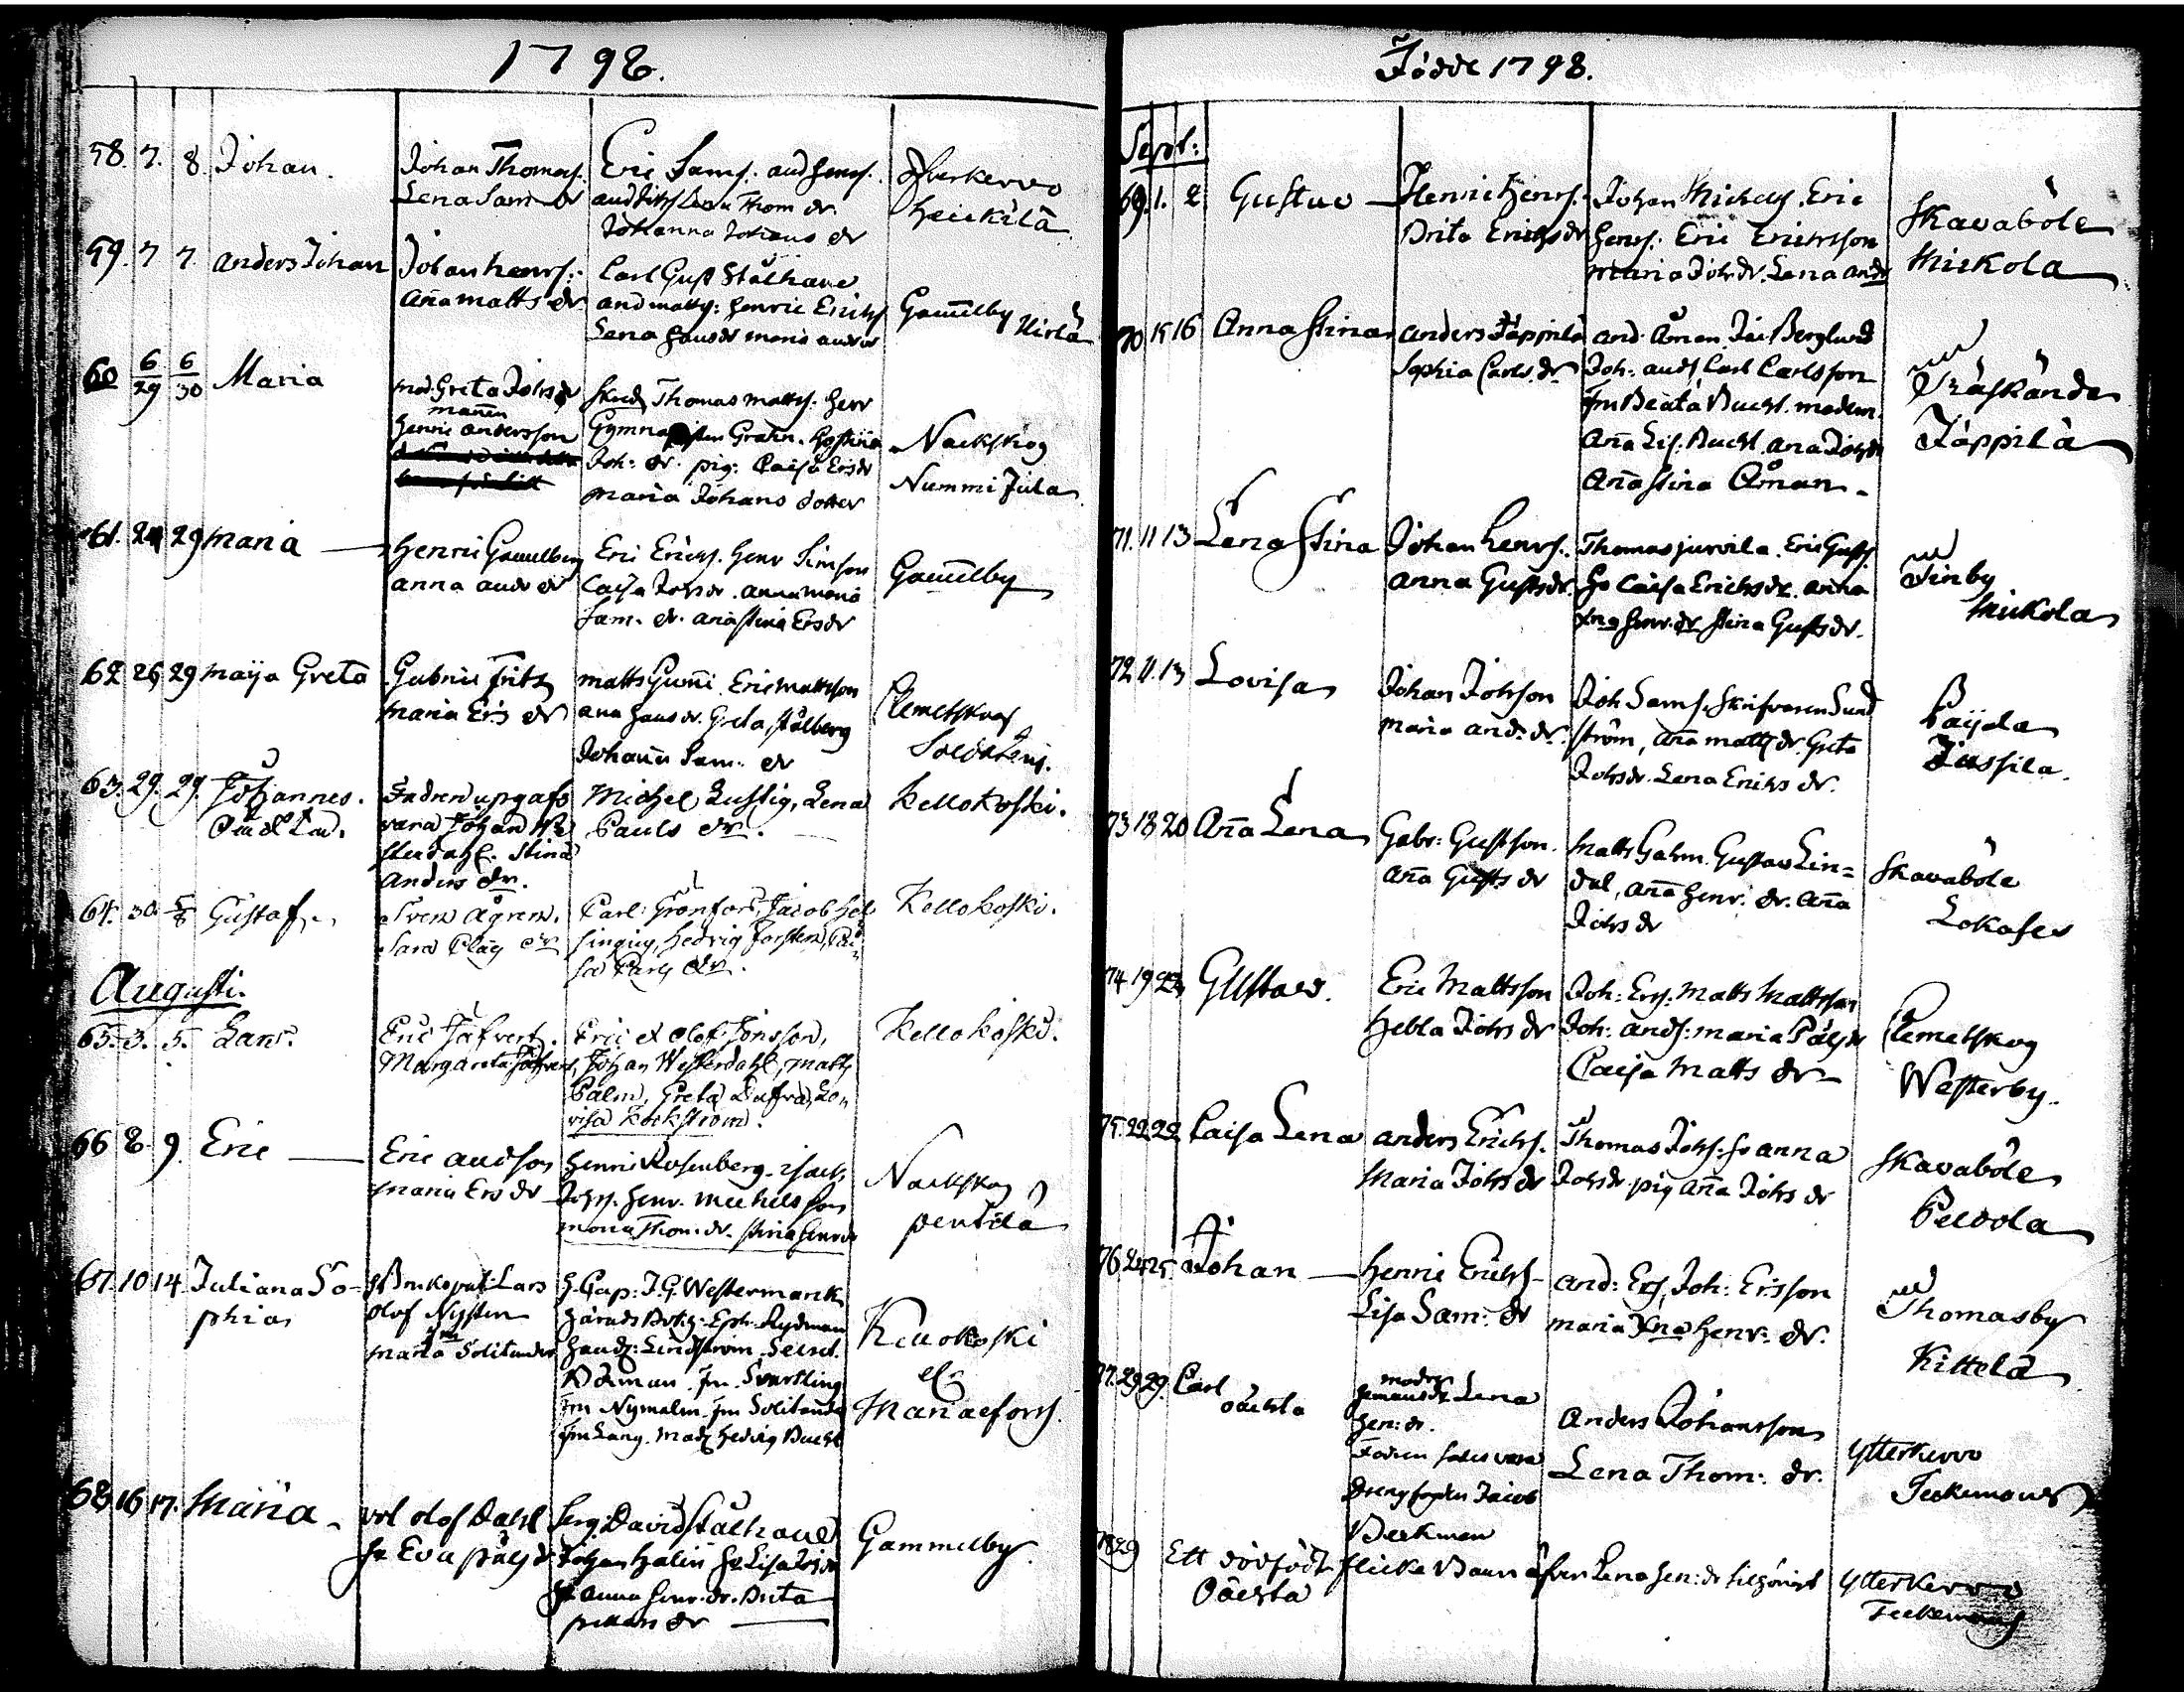 1798.
58. 7. 8. Johan.
Johan Thomas.
Lena Sam dr
Eric Sams. and henrs.
Thom dr
Johanna Johans dr
Heickilä
59. 7 7. Anders Johan
Johan henrs.
Anna matts dr
Carl Gust Stålhane
and matts: henric Erichs
Lena hansdr maria andrs dr
Gam̄elby Hirlä
60 6/29 6/30 Maria
mod. Greta Johs dr
mannen
henric andersson
Thomas matts. henr
Grahn.
Joh: dr. pig: Caisa Ersdr
maria Johans dotter
Nackskog
Nummi Jula
61. 24 29 maria
Henric Gammelberg
anna andr dr
Eric Erichs. henr Simson
Caisa Johs dr. anna maria
Sam. dr. aña stina Ersdr
Gam̄elby
62. 26 29 maija Greta
Gabriel Fritz
maria Ers dr
matts Gum̄i Eric mattsson
ana hans dr. Greta Stålberg
Johan̄a Sam: dr
Klemetskog
63. 29. 29. Johannes.
Oäckta.
Fadren upgafs
vara Johan We
sterdahl. Stina
Anders dr.
Michel Lustig, Lena
Pauls dr.
Kellokoski.
64. 30. 5/8 Gustaf
Sven Ågren.
Sara Claës dr
Carl: Grönfors, Jacob Hel
singius, Hedvig Forsten, Cai
sa Carls dr.
Kellokoski.
Augusti.
65. 3. 5. Lars.
Eric Jäfvert.
Margareta Jäfvert
Eric et Olof Jönsson,
Johan Westerdahl, Matts
Palm, Greta Dufva, Lo
visa Kockström.
Kellokoski.
66 8. 9. Eric
Eric andson
maria Ers dr
Henric Rosenberg. isacs
Johs. henr. michelsson
maria Thom. dr. stina henr dr
Nackskog
pentilä
67. 10 14. Juliana So-
phia
H Bruks pat. Lars
Olof Nysten
maria Solitander
H. Cap: J. G. Westermark
härads Eph. Rydman
hand: Lindström Secret.
fru Svartling
fru Nymalm. fru Solitander
fru Lang. mad. Hedvig Bucht
Kellokoski
et
Mariaefors.
68. 16 17. Maria
vol olof Dahl
hu Eva påls dr
Serg: David Stålhane
Johan Halin hu Lisa Johs dr
hu Anna henr. dr. Brita
Gammelby
Födde 1798.
Sept:
69. 1. 2 Gustav
Henric henrs.
Brita Erichs dr
Johan Michels. Eric
henrs. Eric Erichsson
maria Johs dr. Lena andr
Skavaböle
Mickola
70 15 16 Anna Stina
Anders Jäppilä
Sophia Carls. dr
and. Öman. Jac Berglund
Joh: ands Carl Carlsson
fru Beata Bucht. madem.
Aña Lis. Bucht. ana Johs dr
Aña stina Öman
Träskända
Jäppilä
71. 11 13 Lena Stina
Johan henrs.
anna Gusts dr.
Thomas jurvila. Eric Gusts
hu Caisa Erichs dr. anna
Xna henr. dr stina Gusts dr.
Finby
Mickola
72. 11. 13 Lovisa
Johan Johsson
maria and: dr.
Joh Sams. Skrifvaren Sund
ström, Aña matts dr. Greta
Johs dr. Lena Erichs dr.
Paijala
Jussila.
73 18 20 Aña Lena
Gabr: Gustson.
Aña Gusts dr
Matts Galm. Gustav Lin=
dal, aña henr. dr. aña
Johs dr
Skavaböle
74 19 23 Gustav.
Eric Mattsson
Hebla Johs dr
Joh: Ers. Matts Mattsson
Joh: ands: maria Påls dr
Caisa Matts dr
Klemetskog
Westerby.
75. 22 22 Caisa Lena
anders Erichs.
Maria Johs dr
Thomas Johs: hu anna
Johs dr. pig aña Johs dr
Skavaböle
Peldola
76 24 25 Johan
Henric Erichs
Lisa Sam: dr
and: Ers, Joh: Ersson
maria Xna henr: dr.
Thomasby
Kittelä
77. 29 29. Carl
oäckta
modr
Lena
hen: dr.
Fadren sades vara
drengfogden Jacob
Beckman
Anders Johansson
Lena Thom: dr.
Ytterkervo
78 29
Ett dödfödt flicke Barn äfven Lena hen: dr tilhörigt
Oäckta
Ytterkervo